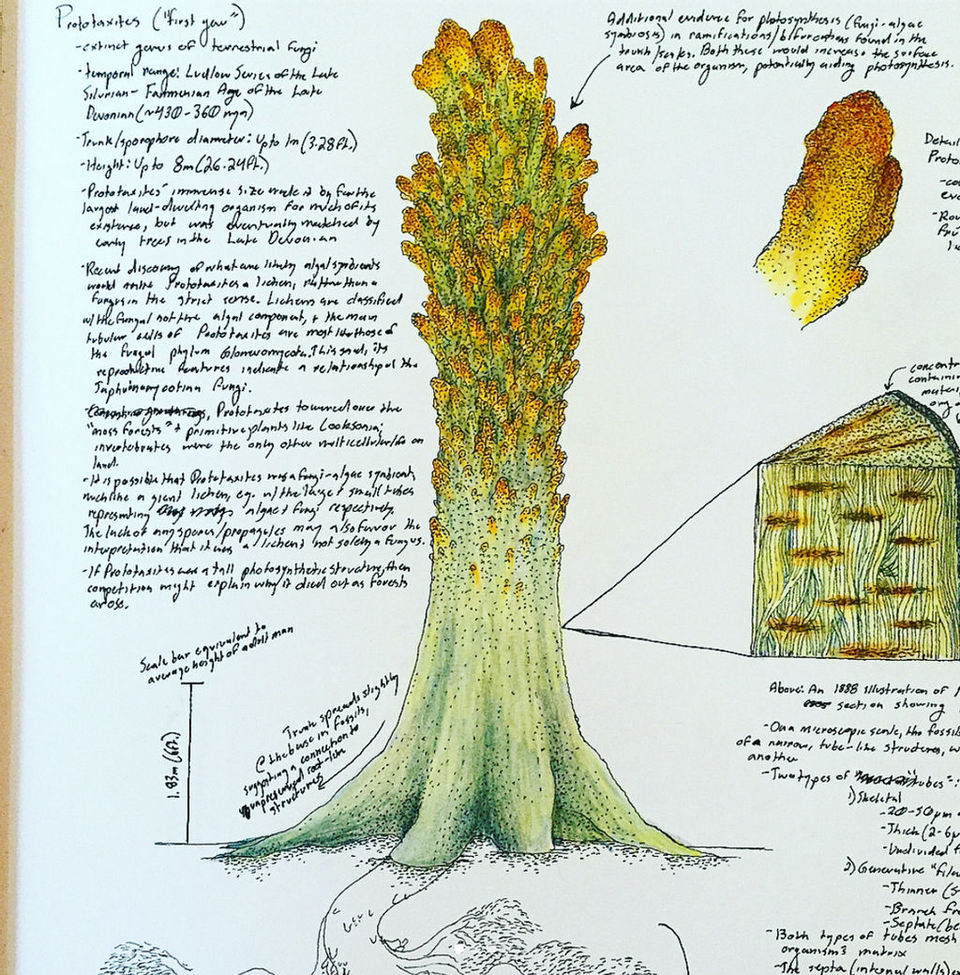 Prototaxites ("first yew")
-extinct genus of terrestrial fungi
-temporal range: Ludlow Series of the Late
Silurian- Famennian Age of the Late
Devonian (~430-360 mya)
-Trunk/sporophore diameter: Up to 1m (3.28ft.)
-Height: Up to 8m (26.24ft.)
-Prototaxites' immense size made it by far the
largest land-dwelling organism for much of its
existence, but was eventually matched by
early trees in the Late Devonian
-Recent discovery of what are likely algal symbionts
would make Prototaxites a lichen, rather than a
fungus in the strict sense. Lichens are classified
w/ the fungal not the algal component, + the main
tubular cells of Prototaxites are most like those of
the fungal phylum Glomeromycota. This said, its
reproductive features indicate a relationship w/ the
Taphrinomycotina fungi.
Prototaxites towered over the
"moss forests" + primitive plants like Cooksonia;
invertebrates were the only other multicellular life on
land.
-It is possible that Prototaxites was a fungi-algae symbiont,
much like a giant lichen, e.g. w/ the large + small tubes
representing algae + fungi respectively.
The lack of any spores/propagules may also favor the
interpretation that it was a lichen + not solely a fungus.
-If Prototaxites was a tall photosynthetic structure, then
competition might explain why it died out as forests
arose.
Scale bar equivalent to
average height of adult man
1.83m (6ft.)
Trunk spreads slightly
@ the base in fossils,
suggesting a connection to
unpreserved root-like
structures
Additional evidence for photosynthesis (fungi-algae
symbiosis) in ramifications/bifurcations found in the
trunk/sides. Both these would increase the surface
area of the organism, potentially aiding photosynthesis.
Detail
Proto
-co
eve
-Rou
concentr
containin
mater
org
Above: An 1888 illustration of
section showing
-On a microscopic scale, the fossil
of a narrow, tube-like structures, w
another
-Two types of "tubes":
1) Skeletal
-20-50μm
-Thick (2-6μ
-Undivided
2) Generative "fila
-Thinner (5
-Branch fre
-Septate (be
-Both types of tubes mesh
organism's matrix
-The septa (internal walls)